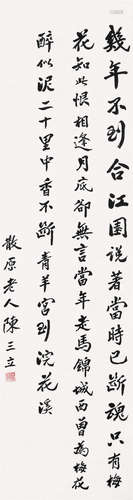 幾年不到合江園説著當時已斷魂只有梅
花知此恨相逢月底卻無言當年走馬錦城西曾為梅花
醉似泥二十里中香不斷青羊宮到浣花溪
散原老人陳三立